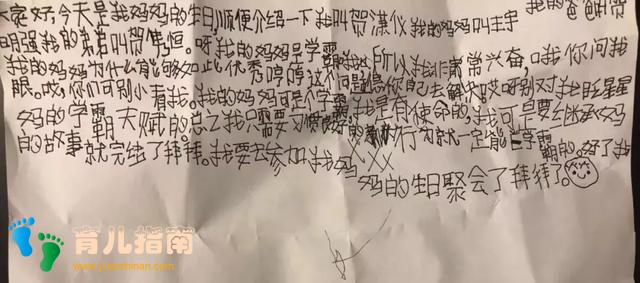 大家好,今天是我妈妈的生日,顺便介绍一下我叫贺潇仪我的妈妈叫王宇 我的爸爸叫贺
明强我的弟弟叫贺隽恒。呀我的妈妈是学霸 所以我非常常兴奋,哦你问我
我的妈妈为什么能够如此优秀哼哼这个问题是你自己去解决哎呀别对我眨星星
眼。哎,你们可别小看我。我的妈妈可是个学霸,我是有使命的,我可是要继承妈
妈的学霸天赋的总之我只需要 行为就一定能 学霸
的故事就完结了拜拜。我要去参加我妈 的,好了我
妈的生日聚会了拜拜了。
育儿指南